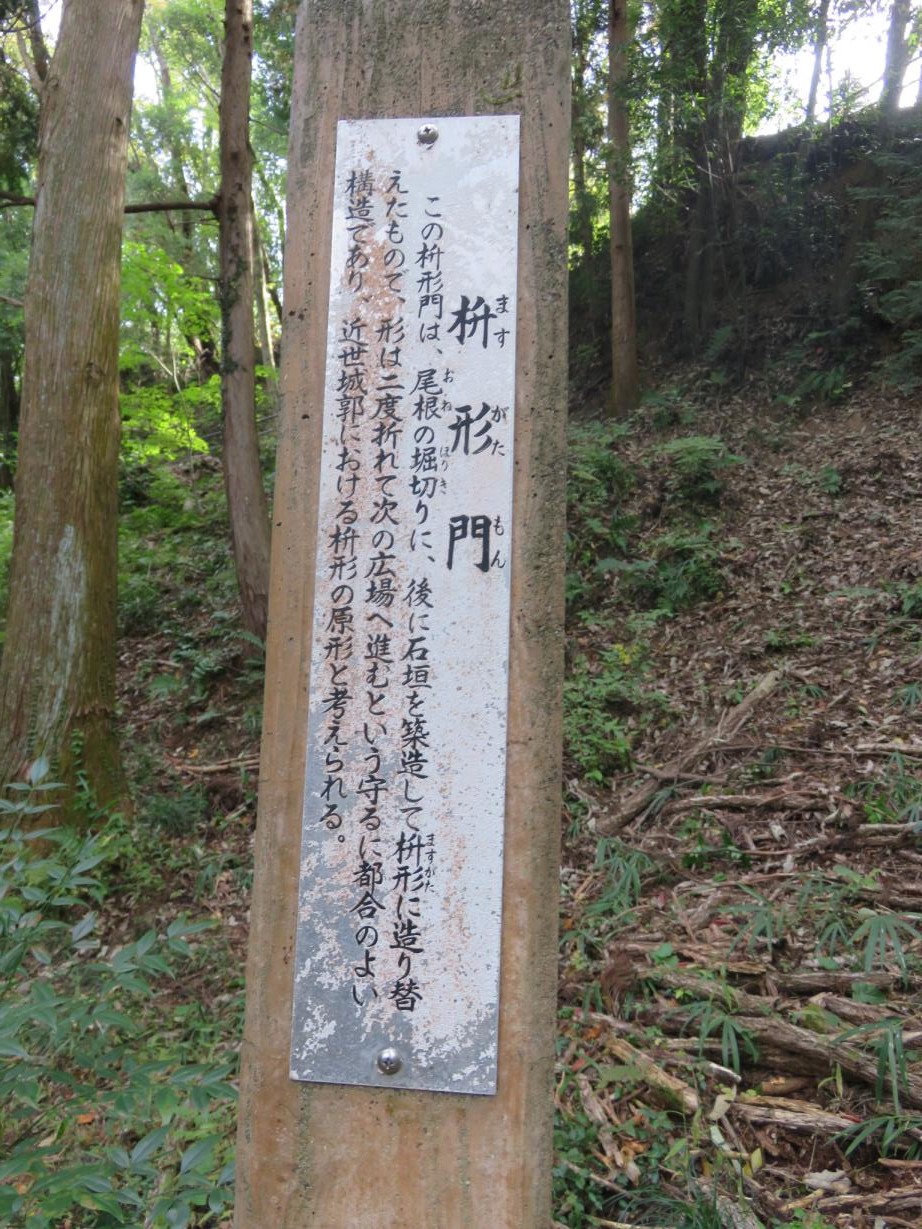 枡形門
ますがたもん
この枡形門は、尾根の堀切りに、後に石垣を築造して枡形に造り替
おね
ほりき
ますがた
えたもので、形は二度折れて次の広場へ進むという守るに都合のよい
構造であり、近世城郭における枡形の原形と考えられる。